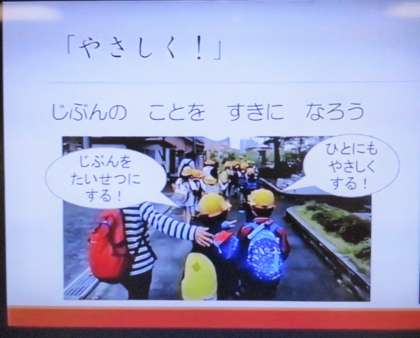 「やさしく！」
じぶんの ことを すきに なろう
じぶんを
たいせつに
する！
ひとにも
やさしく
する！